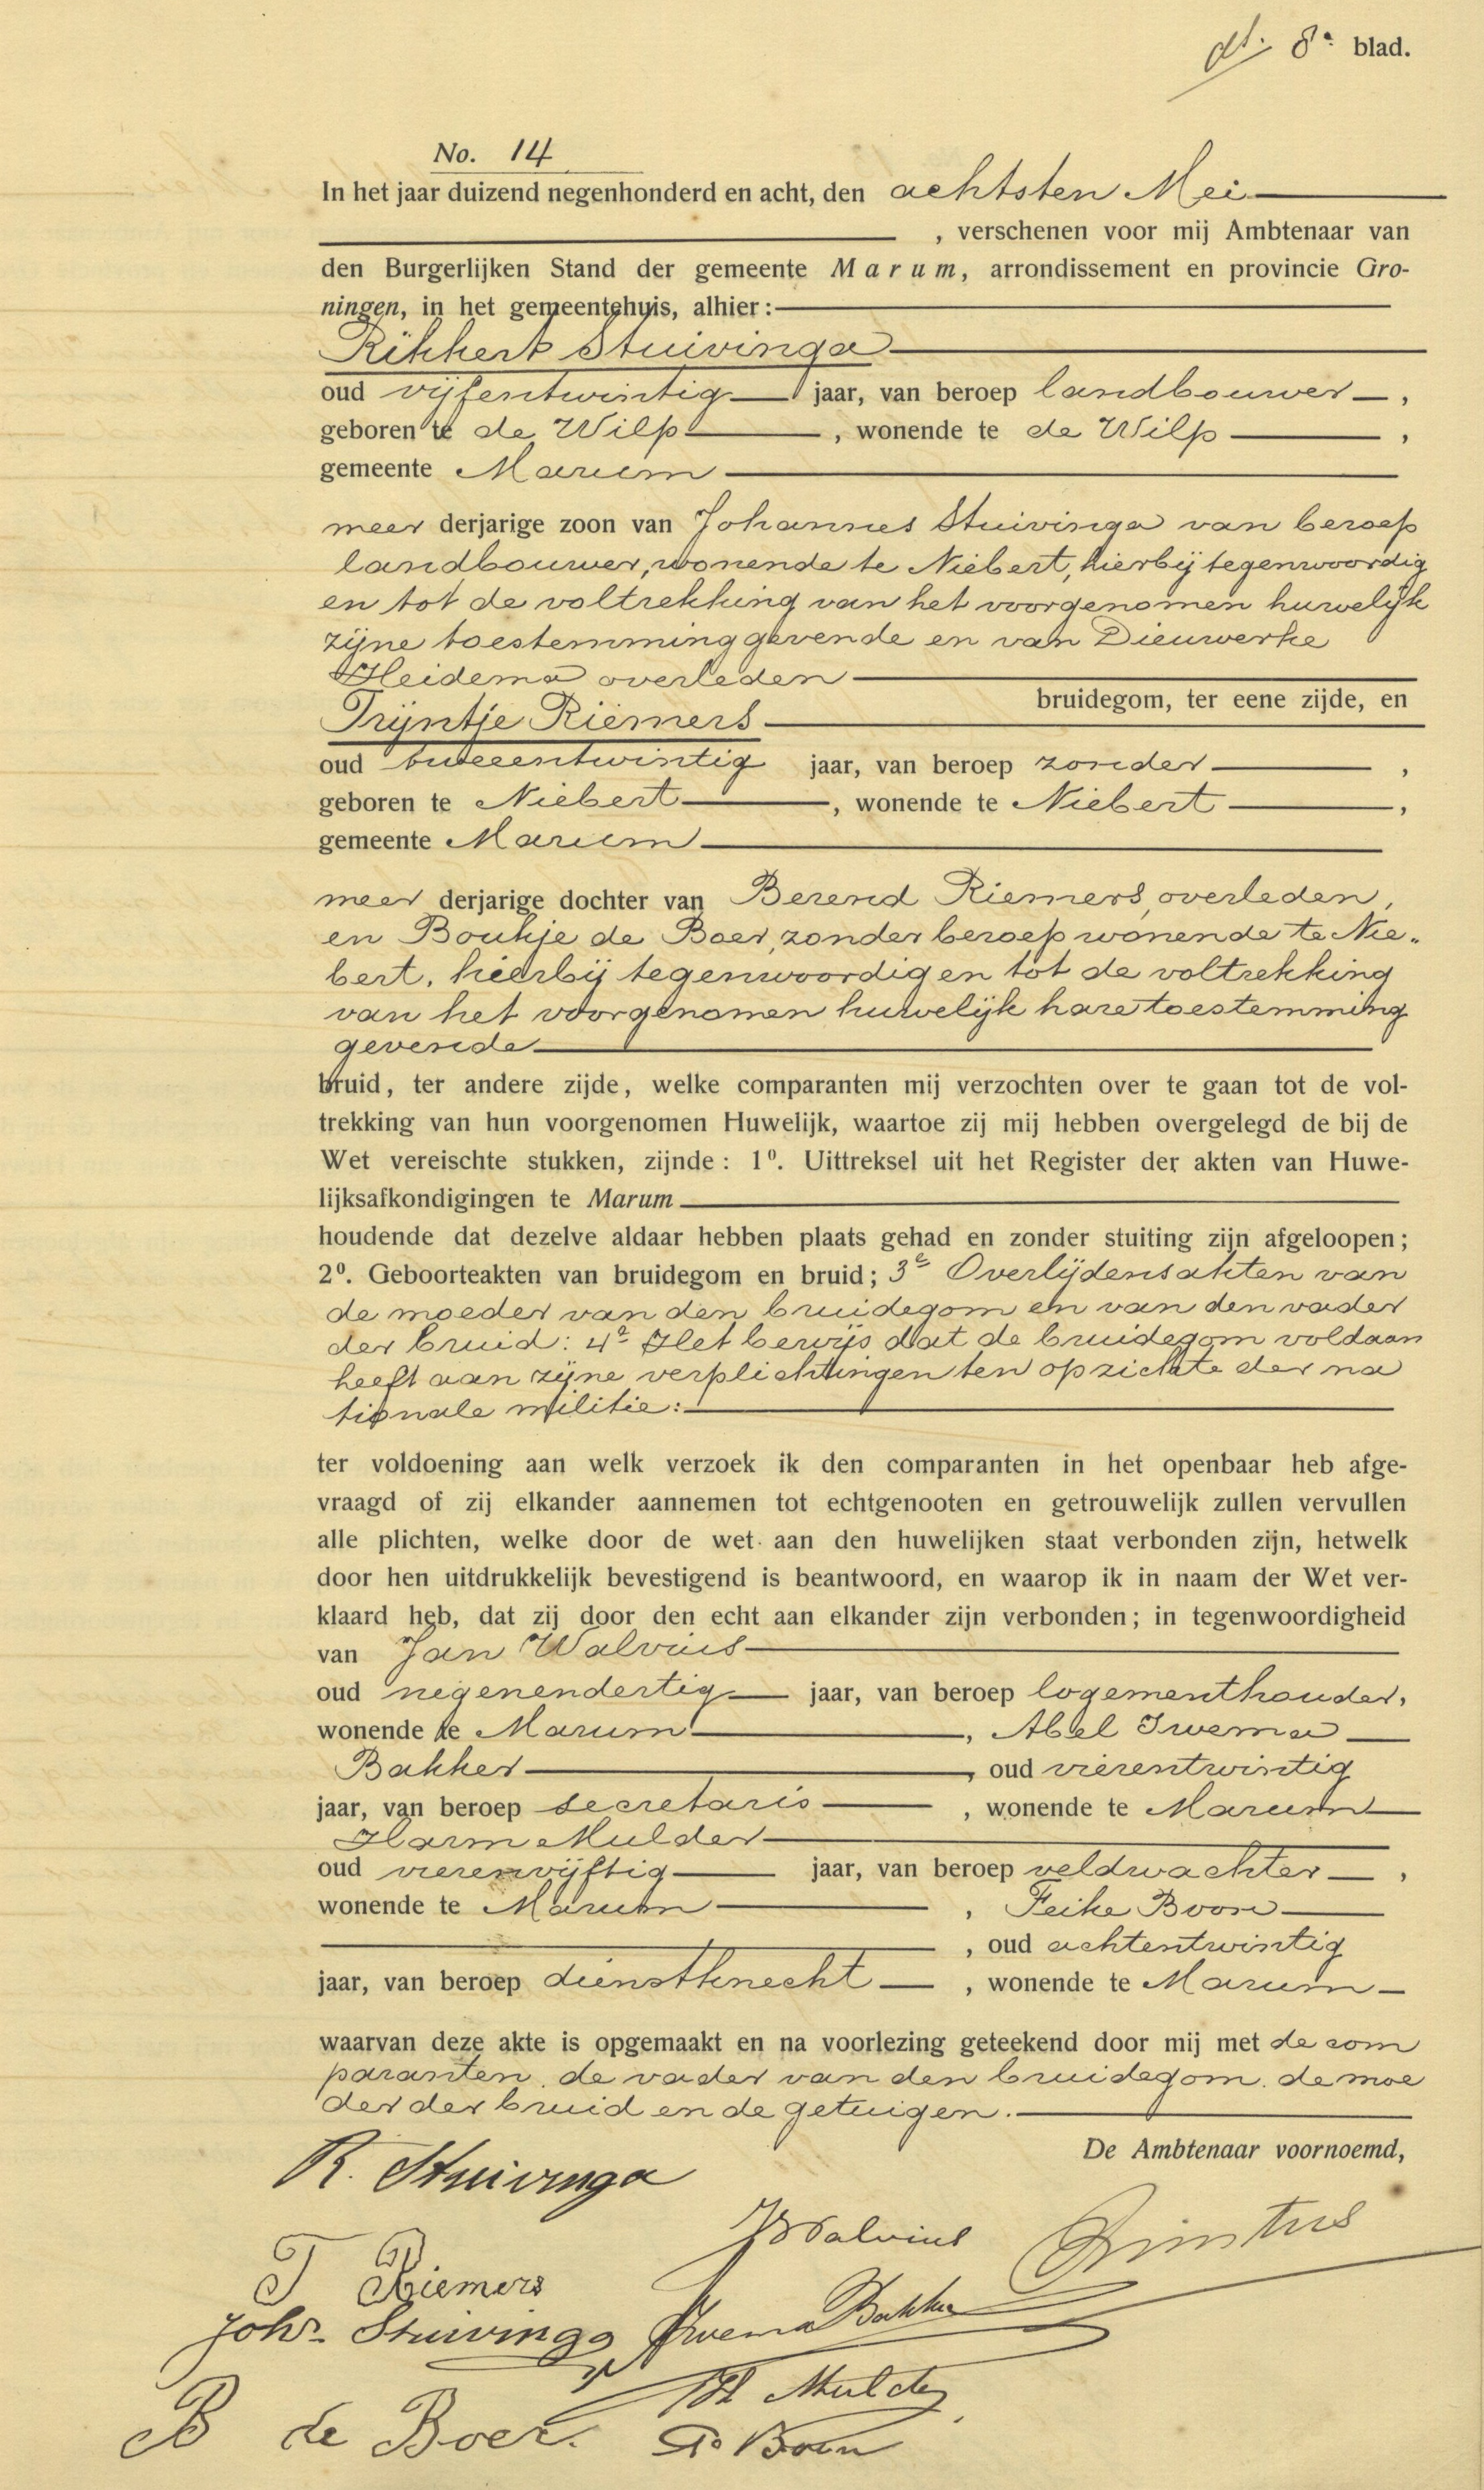 8e blad.
No. 14
In het jaar duizend negenhonderd en acht, den achtsten Mei
, verschenen voor mij Ambtenaar van
den Burgerlijken Stand der gemeente Marum, arrondissement en provincie Gro-
ningen, in het gemeentehuis, alhier:
Rikkert Stuivinga
oud vijfentwintig jaar, van beroep landbouwer,
geboren te de Wilp, wonende te de Wilp,
gemeente Marum
meer derjarige zoon van Johannes Stuivinga van beroep
landbouwer, wonende te Niebert, hierbij tegenwoordig
en tot de voltrekking van het voorgenomen huwelijk
zijne toestemming gevende en van Dieuwerke
Heidema overleden
bruidegom, ter eene zijde, en
Trijntje Riemers
oud tweeentwintig jaar, van beroep zonder,
geboren te Niebert, wonende te Niebert,
gemeente Marum
meer derjarige dochter van Berend Riemers, overleden,
en Boukje de Boer, zonder beroep wonende te Nie„
bert, hierbij tegenwoordig en tot de voltrekking
van het voorgenomen huwelijk hare toestemming
gevende
bruid, ter andere zijde, welke comparanten mij verzochten over te gaan tot de vol-
trekking van hun voorgenomen Huwelijk, waartoe zij mij hebben overgelegd de bij de
Wet vereischte stukken, zijnde: 1º. Uittreksel uit het Register der akten van Huwe-
lijksafkondigingen te Marum
houdende dat dezelve aldaar hebben plaats gehad en zonder stuiting zijn afgeloopen;
2º. Geboorteakten van bruidegom en bruid; 3e Overlijdensakten van
de moeder van den bruidegom en van den vader
der bruid: 4e Het bewijs dat de bruidegom voldaan
heeft aan zijne verplichtingen ten opzichte der na
tionale militie:
ter voldoening aan welk verzoek ik den comparanten in het openbaar heb afge-
vraagd of zij elkander aannemen tot echtgenooten en getrouwelijk zullen vervullen
alle plichten, welke door de wet aan den huwelijken staat verbonden zijn, hetwelk
door hen uitdrukkelijk bevestigend is beantwoord, en waarop ik in naam der Wet ver-
klaard heb, dat zij door den echt aan elkander zijn verbonden; in tegenwoordigheid
van Jan Walvius
oud negenendertig jaar, van beroep logementhouder,
wonende te Marum, Abel Iwema
Bakker, oud vierentwintig
jaar, van beroep secretaris, wonende te Marum
Harm Mulder
oud vierenvijftig jaar, van beroep veldwachter,
wonende te Marum, Feike Boon
, oud achtentwintig
jaar, van beroep dienstknecht, wonende te Marum
waarvan deze akte is opgemaakt en na voorlezing geteekend door mij met de com
paranten, de vader van den bruidegom, de moe
der der bruid en de getuigen.
De Ambtenaar voornoemd,
R. Stuivinga
JWalvius
T Riemers
Johs. Stuivinga
Iwema Bakker
H Mulder
B de Boer.
Boon